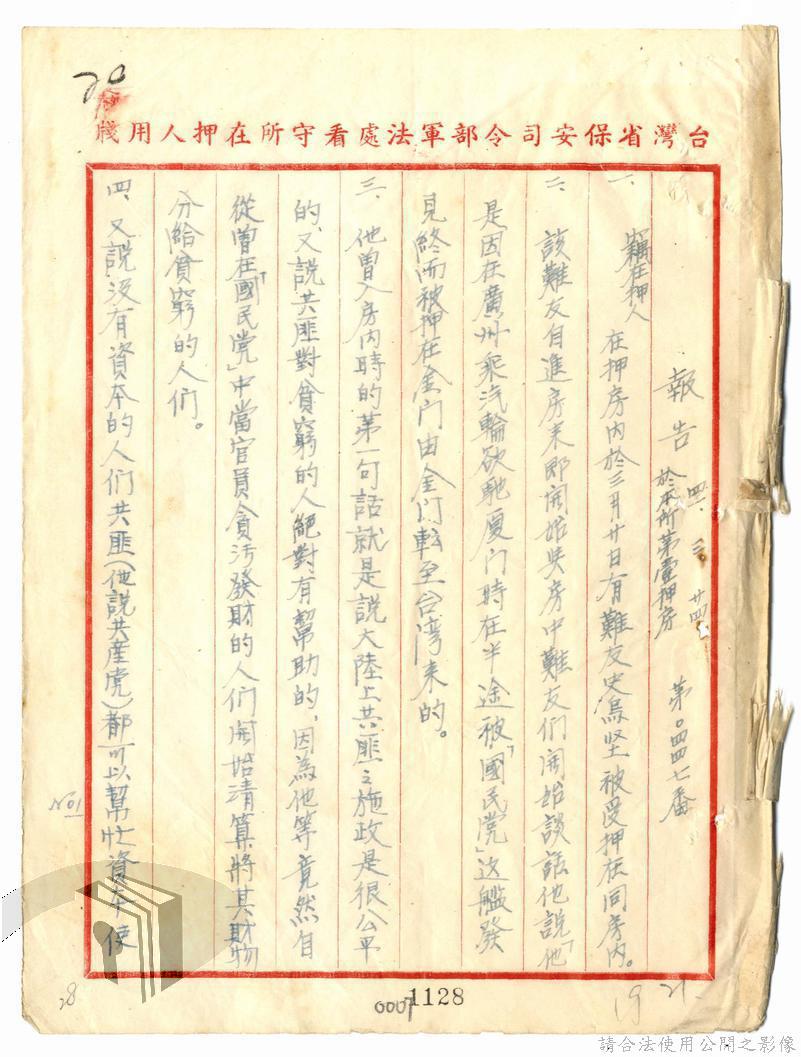 台灣省保安司令部軍法處看守所在押人用牋
報告 四一、三、廿四、
於本所第壹押房 第〇四四七番
一、竊在押人 在押房內於三月廿日有難友史鴻堅被受押在同房內。
二、該難友自進房來即開始與房中難友们開始談話他說「他
是因在廣州乘汽輪欲馳厦门時在半途被「國民党」这艦發
見終而被押在金门由金门転至台湾来的。
三、他曾入房內時的第一句話就是說大陸上共匪之施政是很公平
的、又說共匪對貧窮的人絕對、有幫助的、因為他等竟然自
從曾在「國民党」中當官員貪污發財的人们開始清算將其財物
分給貧窮的人们。
四、又説没有資本的人们共匪（他說共產党）都可以幫忙資本使
No1
20
28
0007
1128
19
21.
請合法使用公開之影像